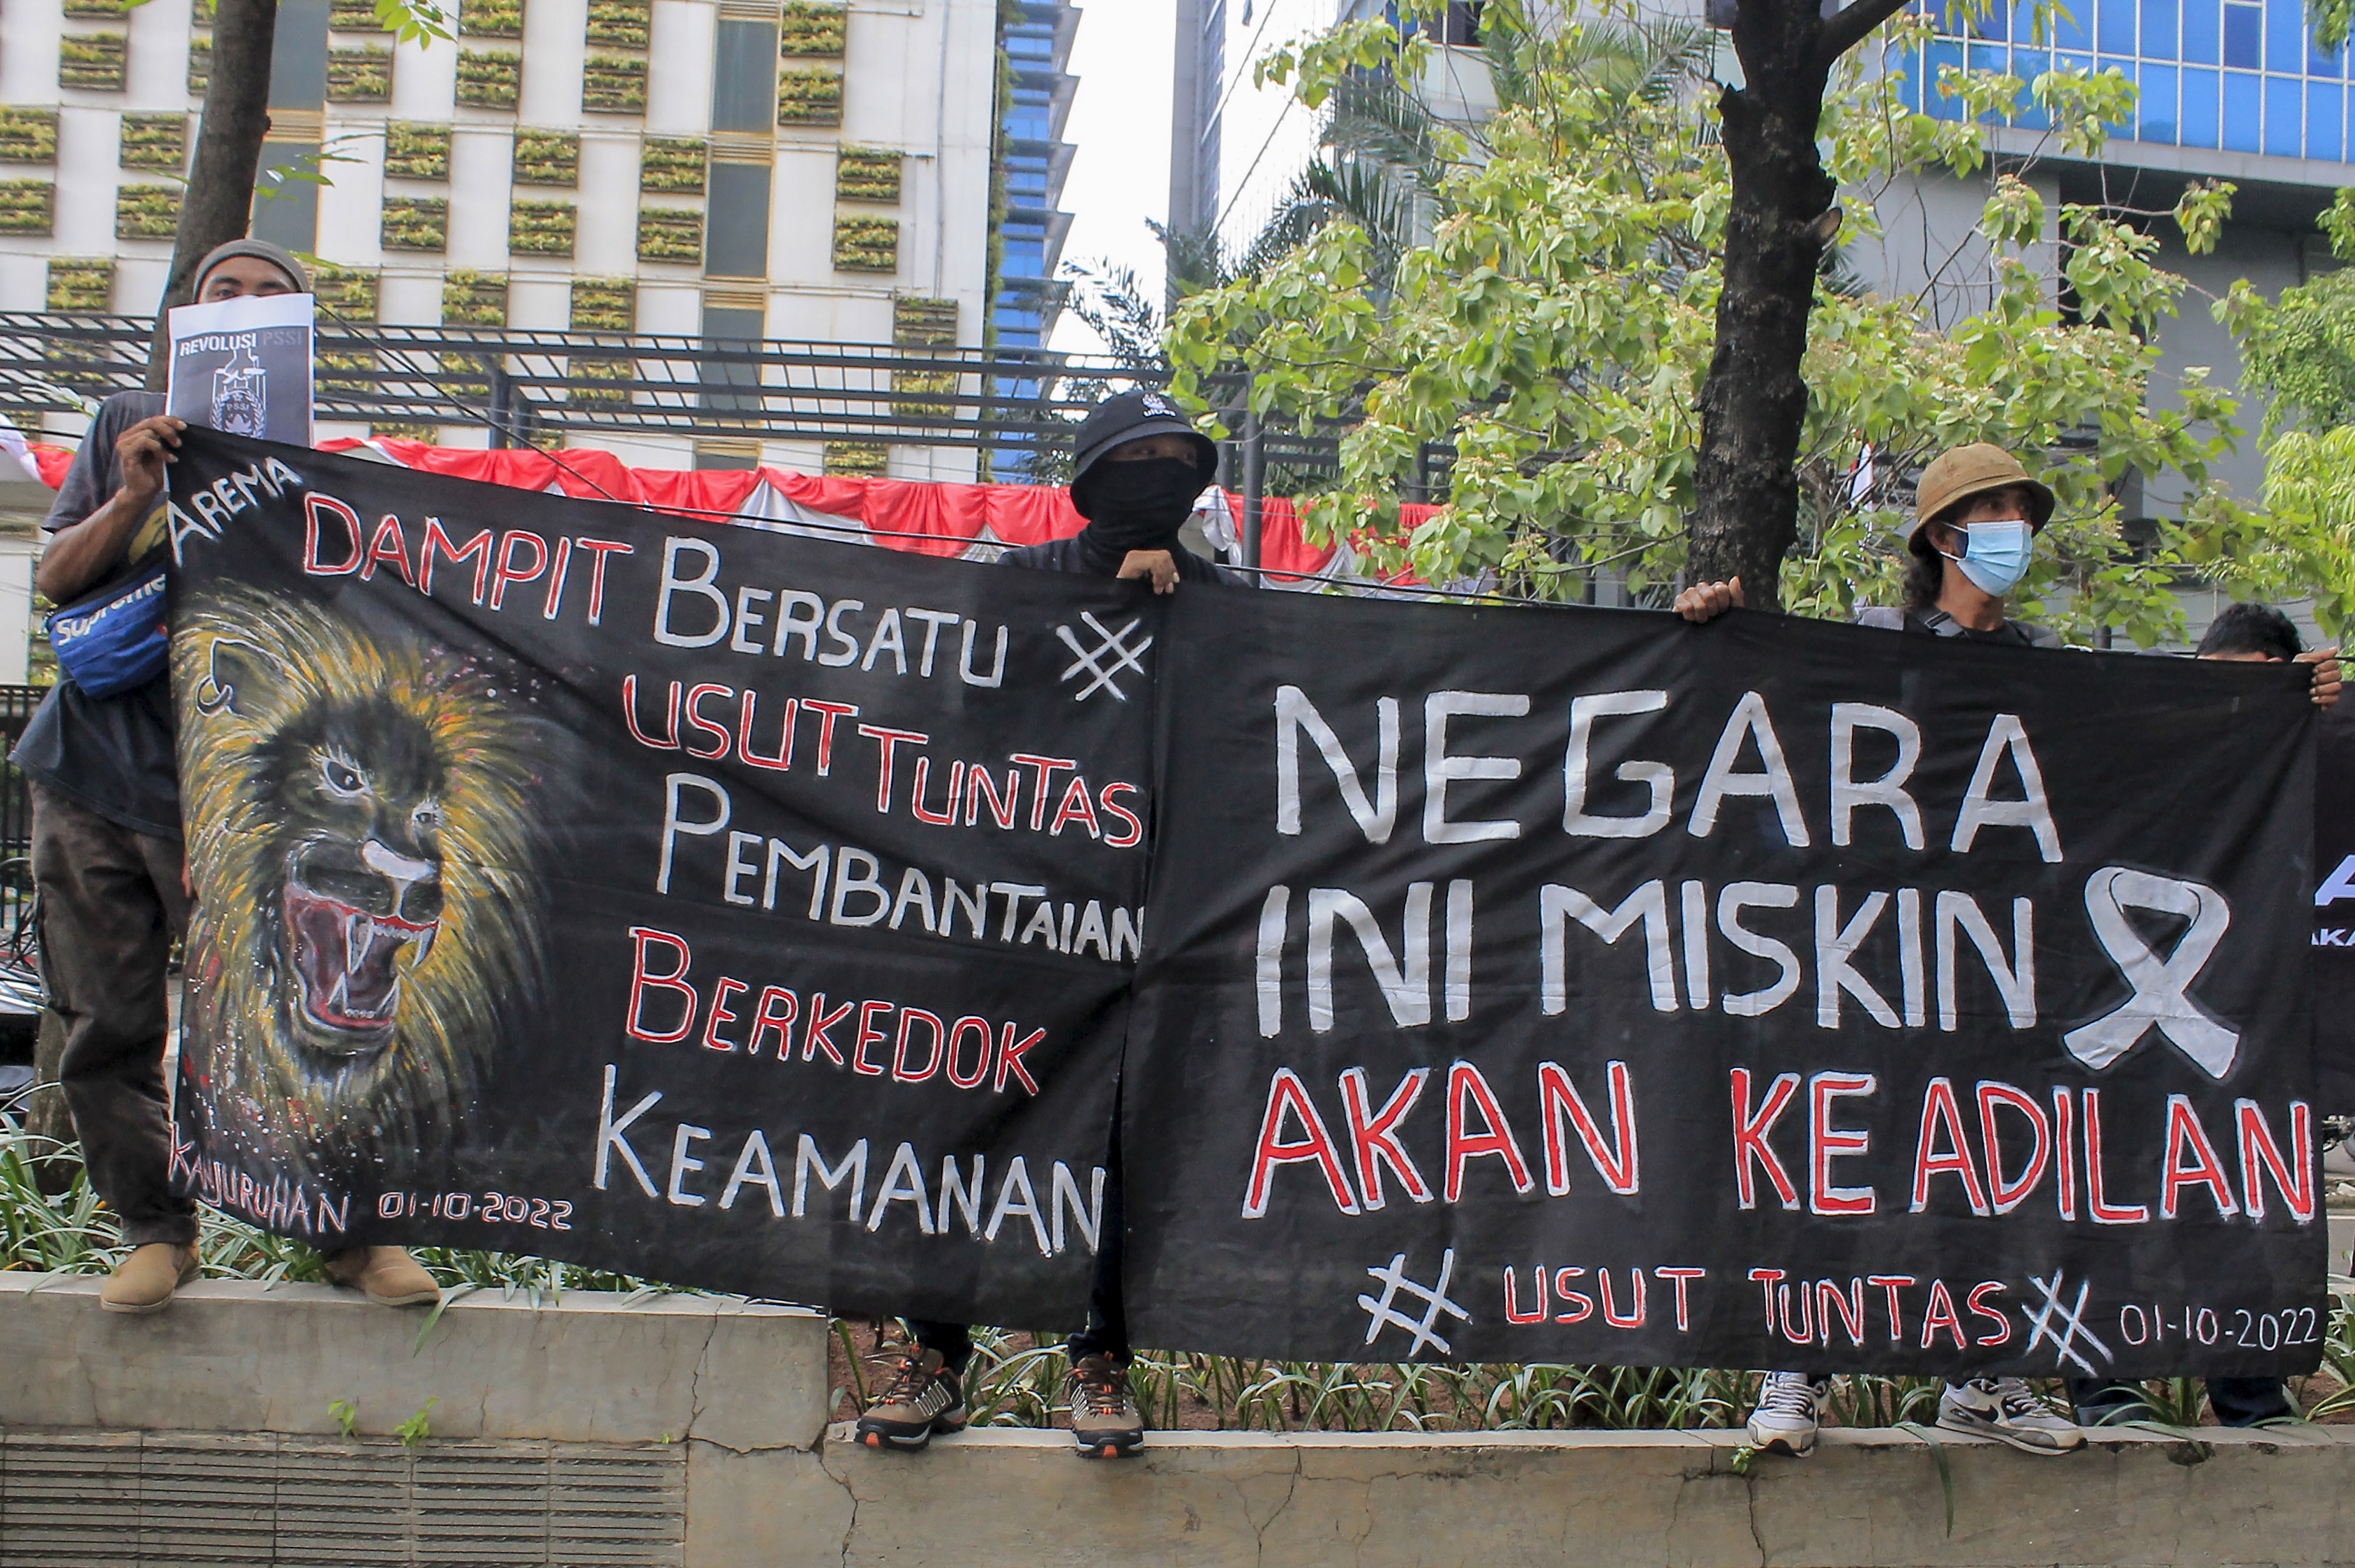 REVOLUSI PSSI
PSSI
Supreme
AREMA
DAMPIT BERSATU #
USUT TUNTAS
PEMBANTAIAN
BERKEDOK
KEAMANAN
KANJURUHAN 01-10-2022
NEGARA
INI MISKIN
AKAN KEADILAN
# USUT TUNTAS # 01-10-2022